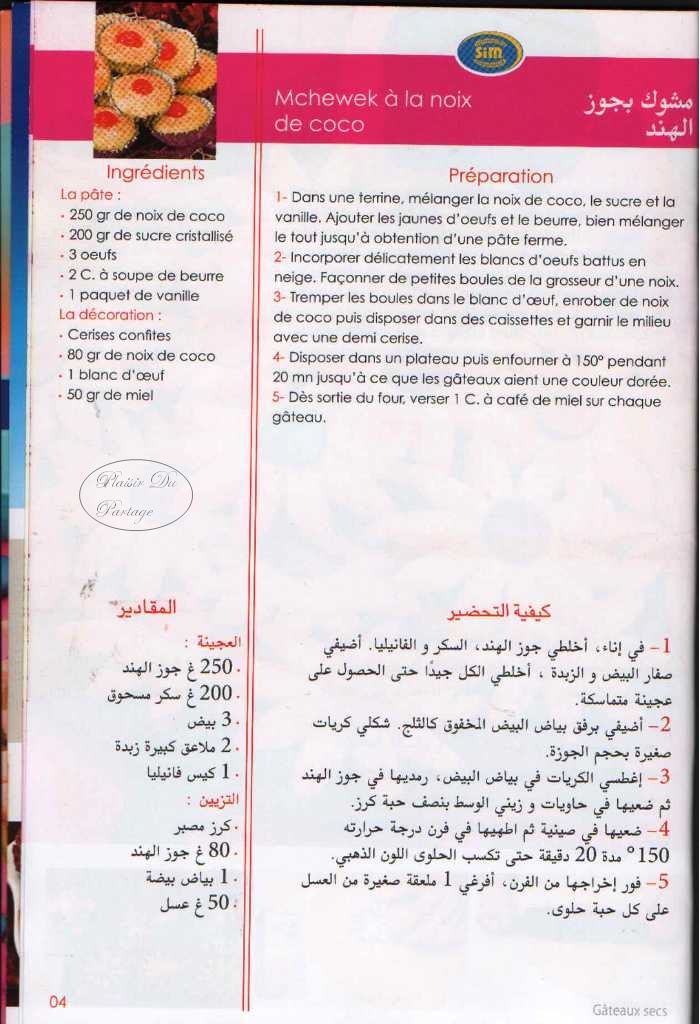 sim
Mchewek à la noix
de coco
مشوك بجوز
الهند
Ingrédients
La pâte :
• 250 gr de noix de coco
• 200 gr de sucre cristallisé
• 3 oeufs
• 2 C. à soupe de beurre
• 1 paquet de vanille
La décoration :
• Cerises confites
• 80 gr de noix de coco
• 1 blanc d'œuf
• 50 gr de miel
Préparation
1- Dans une terrine, mélanger la noix de coco, le sucre et la
vanille. Ajouter les jaunes d'oeufs et le beurre, bien mélanger
le tout jusqu'à obtention d'une pâte ferme.
2- Incorporer délicatement les blancs d'oeufs battus en
neige. Façonner de petites boules de la grosseur d'une noix.
3- Tremper les boules dans le blanc d'œuf, enrober de noix
de coco puis disposer dans des caissettes et garnir le milieu
avec une demi cerise.
4- Disposer dans un plateau puis enfourner à 150° pendant
20 mn jusqu'à ce que les gâteaux aient une couleur dorée.
5- Dès sortie du four, verser 1 C. à café de miel sur chaque
gâteau.
Plaisir Du
Partage
المقادير
العجينة :
• 250 غ جوز الهند
• 200 غ سكر مسحوق
• 3 بيض
• 2 ملاعق كبيرة زبدة
• 1 كيس فانيليا
التزيين :
• كرز مصبر
• 80 غ جوز الهند
• 1 بياض بيضة
• 50 غ عسل
كيفية التحضير
1- في إناء، أخلطي جوز الهند، السكر و الفانيليا. أضيفي
صفار البيض و الزبدة ، أخلطي الكل جيدًا حتى الحصول على
عجينة متماسكة.
2- أضيفي برفق بياض البيض المخفوق كالثلج. شكلي كريات
صغيرة بحجم الجوزة.
3- إغطسي الكريات في بياض البيض، رمديها في جوز الهند
ثم ضعيها في حاويات و زيني الوسط بنصف حبة كرز.
4- ضعيها في صينية ثم اطهيها في فرن درجة حرارته
150° مدة 20 دقيقة حتى تكسب الحلوى اللون الذهبي.
5- فور إخراجها من الفرن، أفرغي 1 ملعقة صغيرة من العسل
على كل حبة حلوى.
04
Gâteaux secs